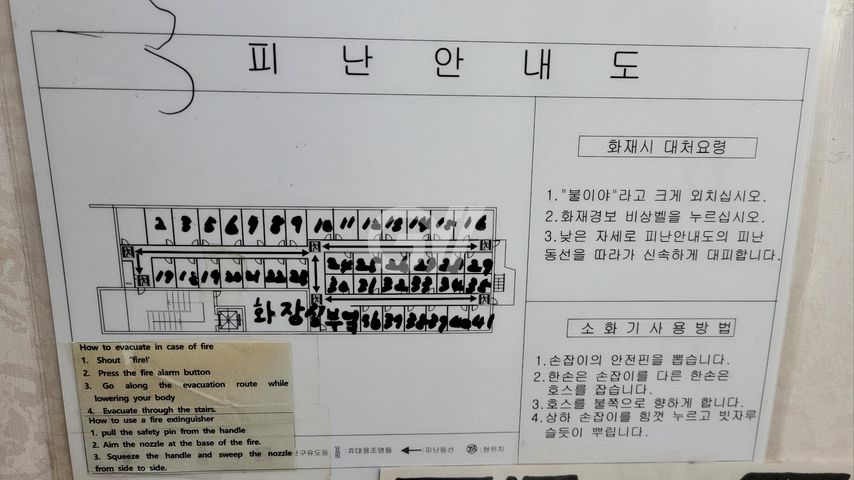 피난안내도
화재시 대처요령
1."불이야"라고 크게 외치십시오.
2.화재경보 비상벨을 누르십시오.
3.낮은 자세로 피난안내도의 피난
동선을 따라가 신속하게 대피합니다.
2 3 5 6 7 8 9 10 11 12 13 14 15 16
17 18 19 20 21 22 23 24 25 26 27 28 29
30 31 32 33 34 35
화장실 부엌 36 37 38 39 40 41
소화기사용방법
1.손잡이의 안전핀을 뽑습니다.
2.한손은 손잡이를 다른 한손은
호스를 잡습니다.
3.호스를 불쪽으로 향하게 합니다.
4.상하 손잡이를 힘껏 누르고 빗자루
쓸듯이 뿌립니다.
How to evacuate in case of fire
1. Shout "fire!'
2. Press the fire alarm button
3. Go along the evacuation route while
lowering your body
4. Evacuate through the stairs.
How to use a fire extinguisher
1. pull the safety pin from the handle
2. Aim the nozzle at the base of the fire.
3. Squeeze the handle and sweep the nozzle
from side to side.
난구유도등 :휴대용조명등 :피난동선 :현위치